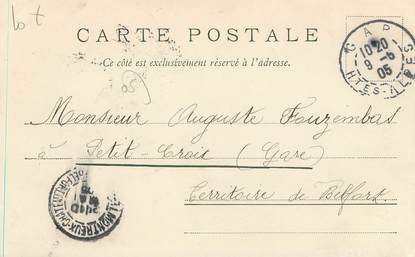 lot
CARTE POSTALE
Ce côté est exclusivement réservé à l'adresse.
GAP
10 20
9 -6
05
HTES-ALPES
Monsieur Auguste Fouzembas
à Petit-Crois (Gare)
Territoire de Belfort
MONTREUX-CHATEAU